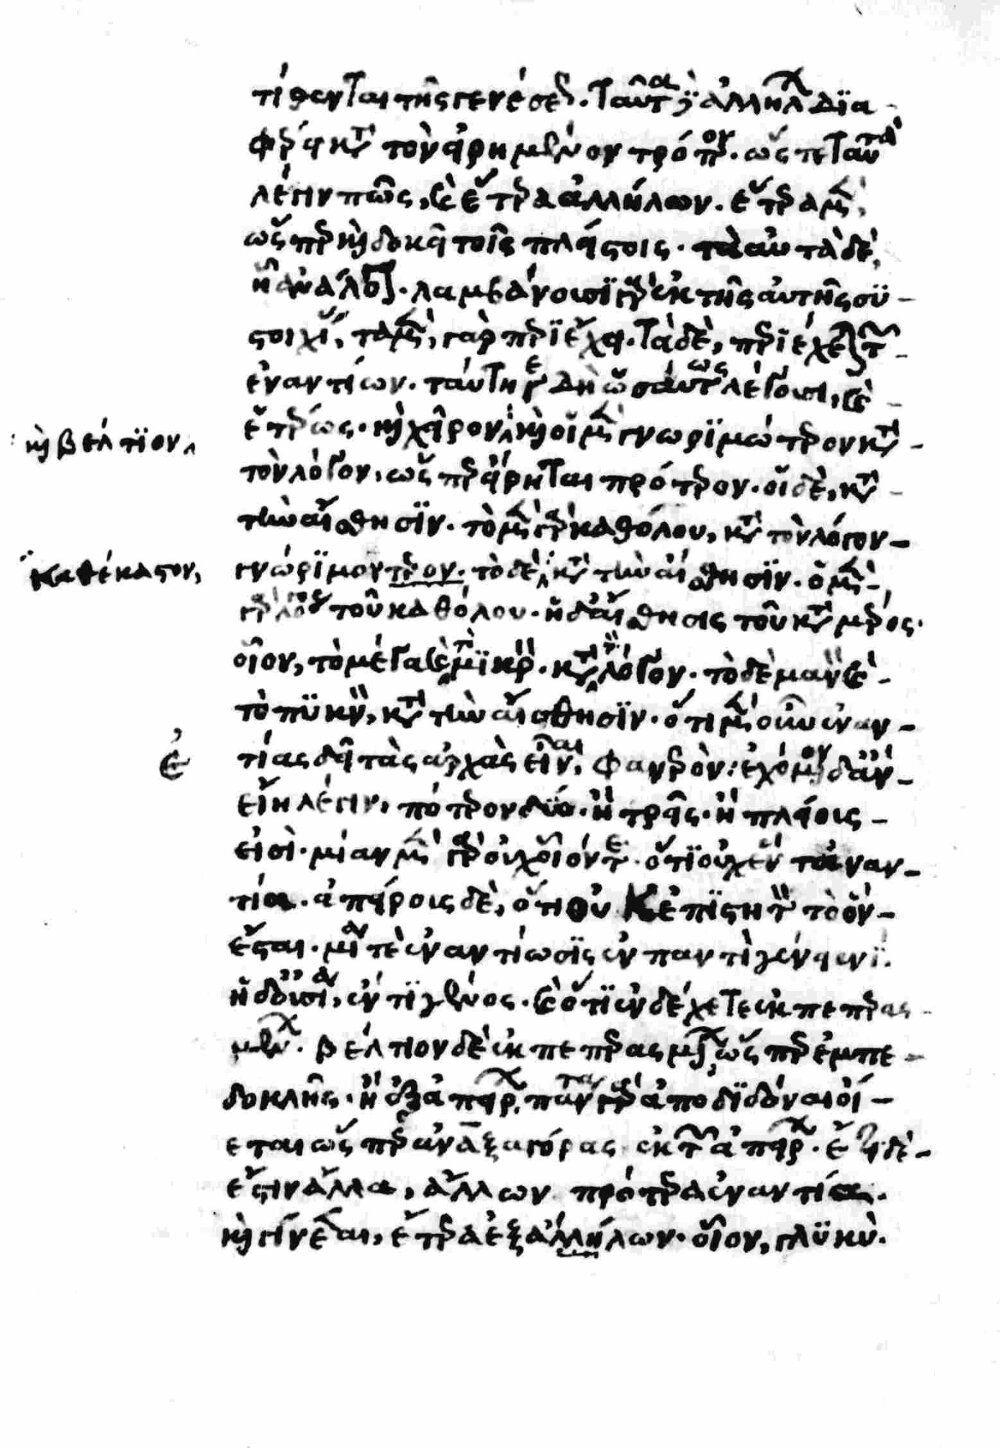 τίθενται τῆς γενέσεως. ταῦτα ἀλλήλων δια-
φέρει κατὰ τὸν εἰρημένον τρόπον. ὥστε ταὐτὰ
λέγειν πῶς, καὶ ἕτερα ἀλλήλων. ἕτερα μὲν,
ὥσπερ καὶ δοκεῖ τοῖς πλείστοις. ταυτὰ δὲ,
ἧ ἀνάλογον. λαμβάνουσι γὰρ ἐκ τῆς αὐτῆς συ-
στοιχίας, τὰ μὲν, γὰρ περιέχει. τὰ δὲ, περιέχεται τῶν
ἐναντίων. ταύτη γε δὴ ὡσαύτως λέγουσι, καὶ
ἑτέρως. καὶ χεῖρον, καὶ οἱ μὲν γνωριμώτερον κατὰ
καὶ βέλτιον
τὸν λόγον, ὥσπερ εἴρηται πρότερον. οἱ δὲ, κατὰ
τὴν αἴσθησιν. τὸ μὲν γὰρ καθόλου, κατὰ τὸν λόγον
καθέκαστον,
γνώριμον τερον. τὸ δὲ κατὰ τὴν αἴσθησιν. ὁ μὲν
γὰρ λόγος τοῦ καθόλου. ἡ δ' αἴσθησις τοῦ κατὰ μέρος.
οἷον, τὸ μέγα καὶ τὸ μικρὸν. κατὰ τὸν λόγον. τὸ δὲ μανὸν καὶ
τὸ πυκνὸν, κατὰ τὴν αἴσθησιν. ὅτι μὲν οὖν ἐναν-
τίας δεῖ τὰς ἀρχὰς εἶναι, φανερὸν: ἐχόμενον δ' ἂν
εἴη λέγειν, πότερον δύο. ἢ τρεῖς. ἢ πλείοις
εἰσὶ. μίαν μὲν γὰρ οὐχ οἷόν τε. ὅτι οὐχ ἓν τὰ ἐναν-
τία. ἀπείροις δὲ, ὅτι οὐκ ἐπιστητὸν τὸ ὂν
ἔσται. μία τὲ ἐναντίωσις ἐν παντὶ γένει ἑνί.
ἡ δ' οὐσία, ἕν τι γένος. καὶ ὅτι ἐνδέχεται ἐκ πεπερας
μένων. βέλτιον δὲ ἐκ πεπερασμένων ὥσπερ ἐμπε
δοκλῆς. ἢ ἐξ ἀπείρων, πάντα γὰρ ἀποδιδόναι οἴ-
εται ὥσπερ ἀναξαγόρας ἐκ τῶν ἀπείρων. ἔτι δὲ
ἔστιν ἄλλα, ἄλλων πρότερα ἐναντία.
καὶ γίνεται, ἕτερα ἐξ ἀλλήλων. οἷον, γλυκὺ.